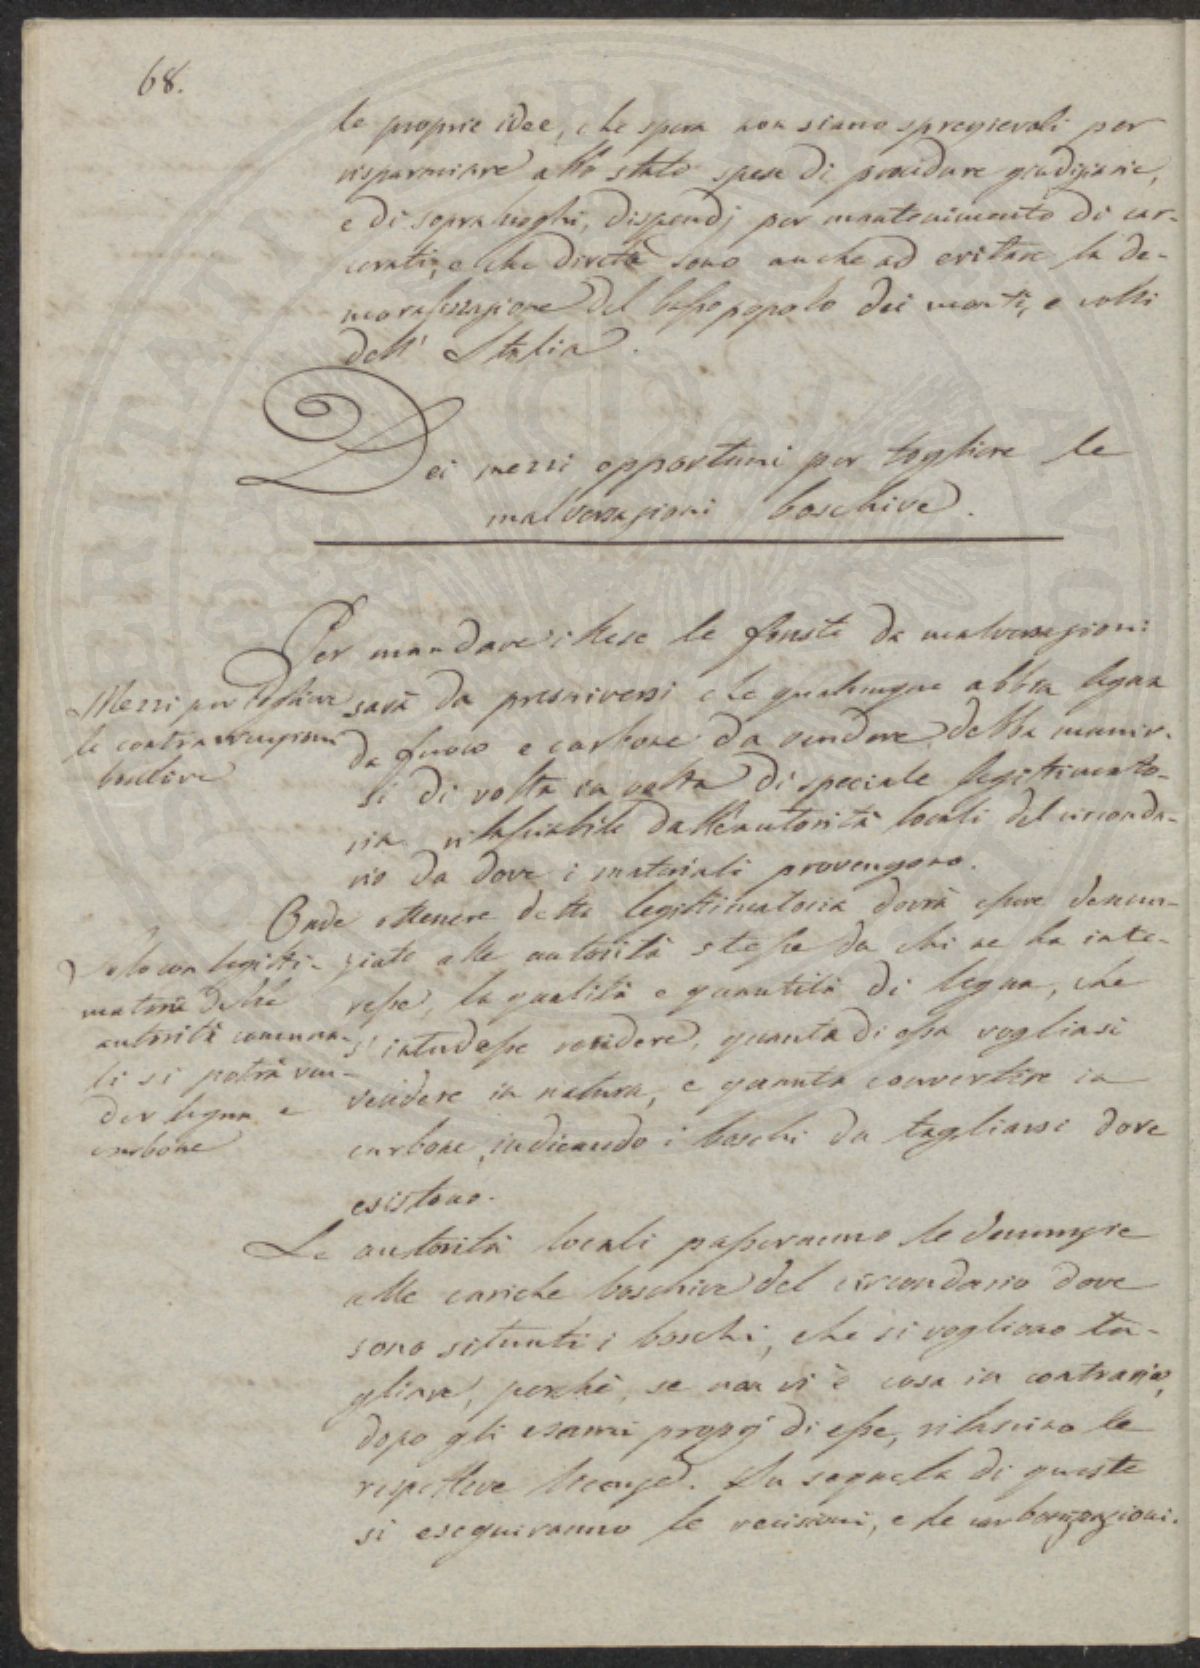 68.
le proprie idee, che spera non siano spregievoli per
risparmiare allo stato spese di procedure giudiziarie,
e di sopra luoghi, dispendj per mantenimento di car-
cerati, e che dirette sono anche ad evitare la de-
moralizzazione del basso popolo dei monti, e colli
dell' Italia.
Dei mezzi opportuni per togliere le
malversazioni boschive.
Per mandare illese le foreste da malversazioni
Mezzi per togliere
le contravvenzioni
boschive
sarà da prescriversi che qualunque abbia legna
da fuoco e carbone da vendere, debba munir-
si di volta in volta di speciale legittimato-
ria rilasciabile dall'autorità locali del circonda-
rio da dove i materiali provengono.
Onde ottenere detta legittimatoria dovrà essere denun-
Solo con legitti-
matoria delle
autorità comuna-
li si potrà ven-
der legna e
carbone
ziato alle autorità stesse da chi ne ha inte-
resse, la qualità e quantità di legna, che
s'intendesse recidere, quanta di essa vogliasi
vendere in natura, e quanta convertire in
carbone, indicando i boschi da tagliarsi dove
esistono.
Le autorità locali passeranno le denunzie
alle cariche boschive del circondario dove
sono situati i boschi, che si vogliono ta-
gliare, perché, se non vi è cosa in contrario,
dopo gli esami proprj di esse, rilascino le
respettive licenze. In seguela di queste
si eseguiranno le recisioni, e le carbonizzazioni.